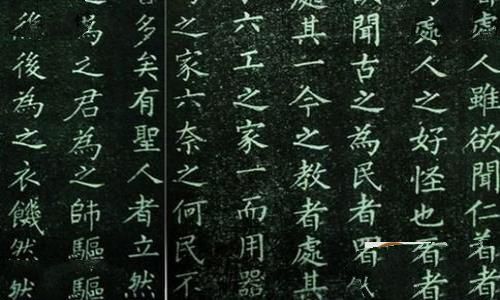 人雖欲聞仁者
處人之好怪也者者
聞古之為民者
處其一今之教者處其
六工之家一而用器
之家六奈之何民不
多矣有聖人者立然
為之君為之師驅驅
後後為之衣饑然然